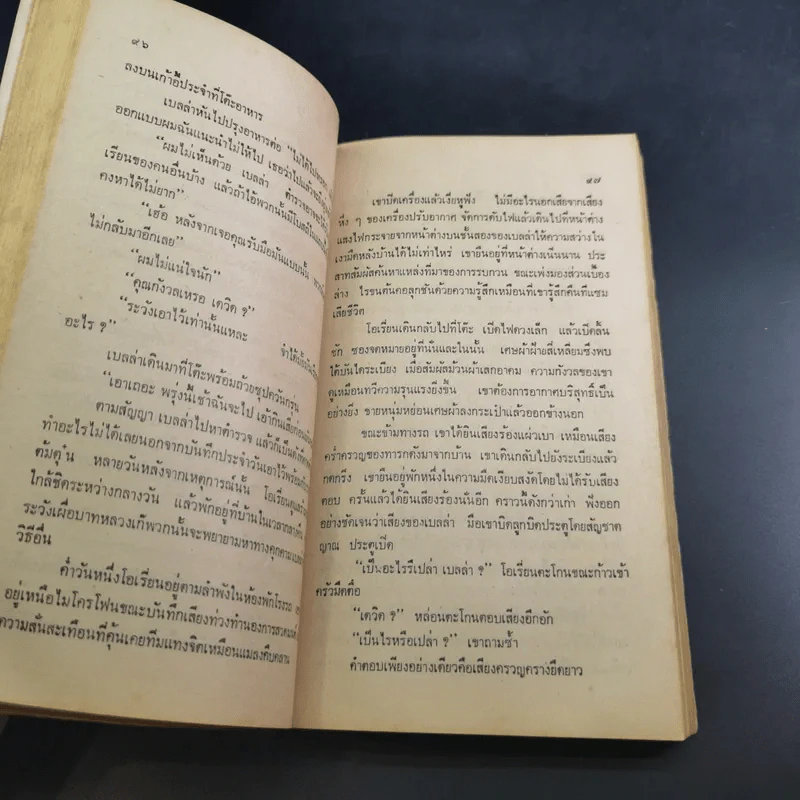 ๙๖
ลงบนเก้าอี้ประจำที่โต๊ะอาหาร
เบลล่าหันไปปรุงอาหารต่อ "ไม่ได้ไป
ออกแบบผมฉันแนะนำไม่ให้ไป เธอว่าไปแล้ว
"ผมไม่เห็นด้วย เบลล่า ตำรวจอาจจะ
เรียนของคนอื่นบ้าง แล้วถ้าไอ้พวกนั้นมี
คงหาได้ไม่ยาก"
"เฮ้อ หลังจากเจอคุณรับมือมันแบบนั้น
ไม่กลับมาอีกเลย"
"ผมไม่แน่ใจนัก"
"คุณกังวลเหรอ เดวิด ?"
"ระวังเอาไว้เท่านั้นแหละ
อะไร ?"
เบลล่าเดินมาที่โต๊ะพร้อมถ้วยซุปควันกรุ่น
"เอาเถอะ พรุ่งนี้เช้าฉันจะไป เอ้ากินเสียก่อน
ตามสัญญา เบลล่าไปหาตำรวจ แล้วก็เป็น
ทำอะไรไม่ได้เลยนอกจากบันทึกประจำวันเอาไว้พร้อม
ต้มตุ๋น หลายวันหลังจากเหตุการณ์นั้น โอเรียน
ใกล้ชิดระหว่างกลางวัน แล้วพักอยู่ที่บ้านในเวลากลางคืน
ระวังเผื่อบาทหลวงเก๊พวกนั้นจะพยายามหาทางคุกคาม
วิธีอื่น
ค่ำวันหนึ่งโอเรียนอยู่ตามลำพังในห้องพักโรงรถ
อยู่เหนือไมโครโฟนขณะบันทึกเสียงท่วงทำนองการสวดมนต์
ความสั่นสะเทือนที่คุ้นเคยทิ่มแทงจิตเหมือนแมลงคืบคลาน
๙๗
เขาปิดเครื่องแล้วเงี่ยหูฟัง ไม่มีอะไรนอกเสียจากเสียง
หึ่ง ๆ ของเครื่องปรับอากาศ จัดการดับไฟแล้วเดินไปที่หน้าต่าง
แสงไฟกระจายจากหน้าต่างบนชั้นสองของเบลล่าให้ความสว่างใน
เงามืดหลังบ้านได้ไม่เท่าไหร่ เขายืนอยู่ที่หน้าต่างเนิ่นนาน ประ
สาทสัมผัสค้นหาแหล่งที่มาของการรบกวน ขณะเพ่งมองส่วนเบื้อง
ล่าง ไรขนต้นคอลุกชันด้วยความรู้สึกเหมือนที่เขารู้สึกคืนที่แซม
เสียชีวิต
โอเรียนเดินกลับไปที่โต๊ะ เปิดไฟดวงเล็ก แล้วเปิดลิ้น
ชัก ซองจดหมายอยู่ที่นั่นและในนั้น เศษผ้าฝ้ายสี่เหลี่ยมซึ่งพบ
ใต้บันไดระเบียง เมื่อสัมผัสม้วนผ้าเสกอาคม ความกังวลของเขา
ดูเหมือนทวีความรุนแรงยิ่งขึ้น เขาต้องการอากาศบริสุทธิ์เป็น
อย่างยิ่ง ชายหนุ่มหย่อนเศษผ้าลงกระเป๋าแล้วออกข้างนอก
ขณะข้ามทางรถ เขาได้ยินเสียงร้องแผ่วเบา เหมือนเสียง
คร่ำครวญของทารกดังมาจากบ้าน เขาเดินกลับไปยังระเบียงแล้ว
กดกริ่ง เขายืนอยู่พักหนึ่งในความมืดเงียบสงัดโดยไม่ได้รับเสียง
ตอบ ครั้นแล้วได้ยินเสียงร้องนั่นอีก คราวนี้ดังกว่าเก่า ฟังออก
อย่างชัดเจนว่าเสียงของเบลล่า มือเขาบิดลูกบิดประตูโดยสัญชาต
ญาณ ประตูเปิด
"เป็นอะไรรึเปล่า เบลล่า ?" โอเรียนตะโกนขณะก้าวเข้า
ครัวมืดตื้อ
"เดวิด ?" หล่อนตะโกนตอบเสียงอึกอัก
"เป็นไรหรือเปล่า ?" เขาถามซ้ำ
คำตอบเพียงอย่างเดียวคือเสียงครวญครางยืดยาว